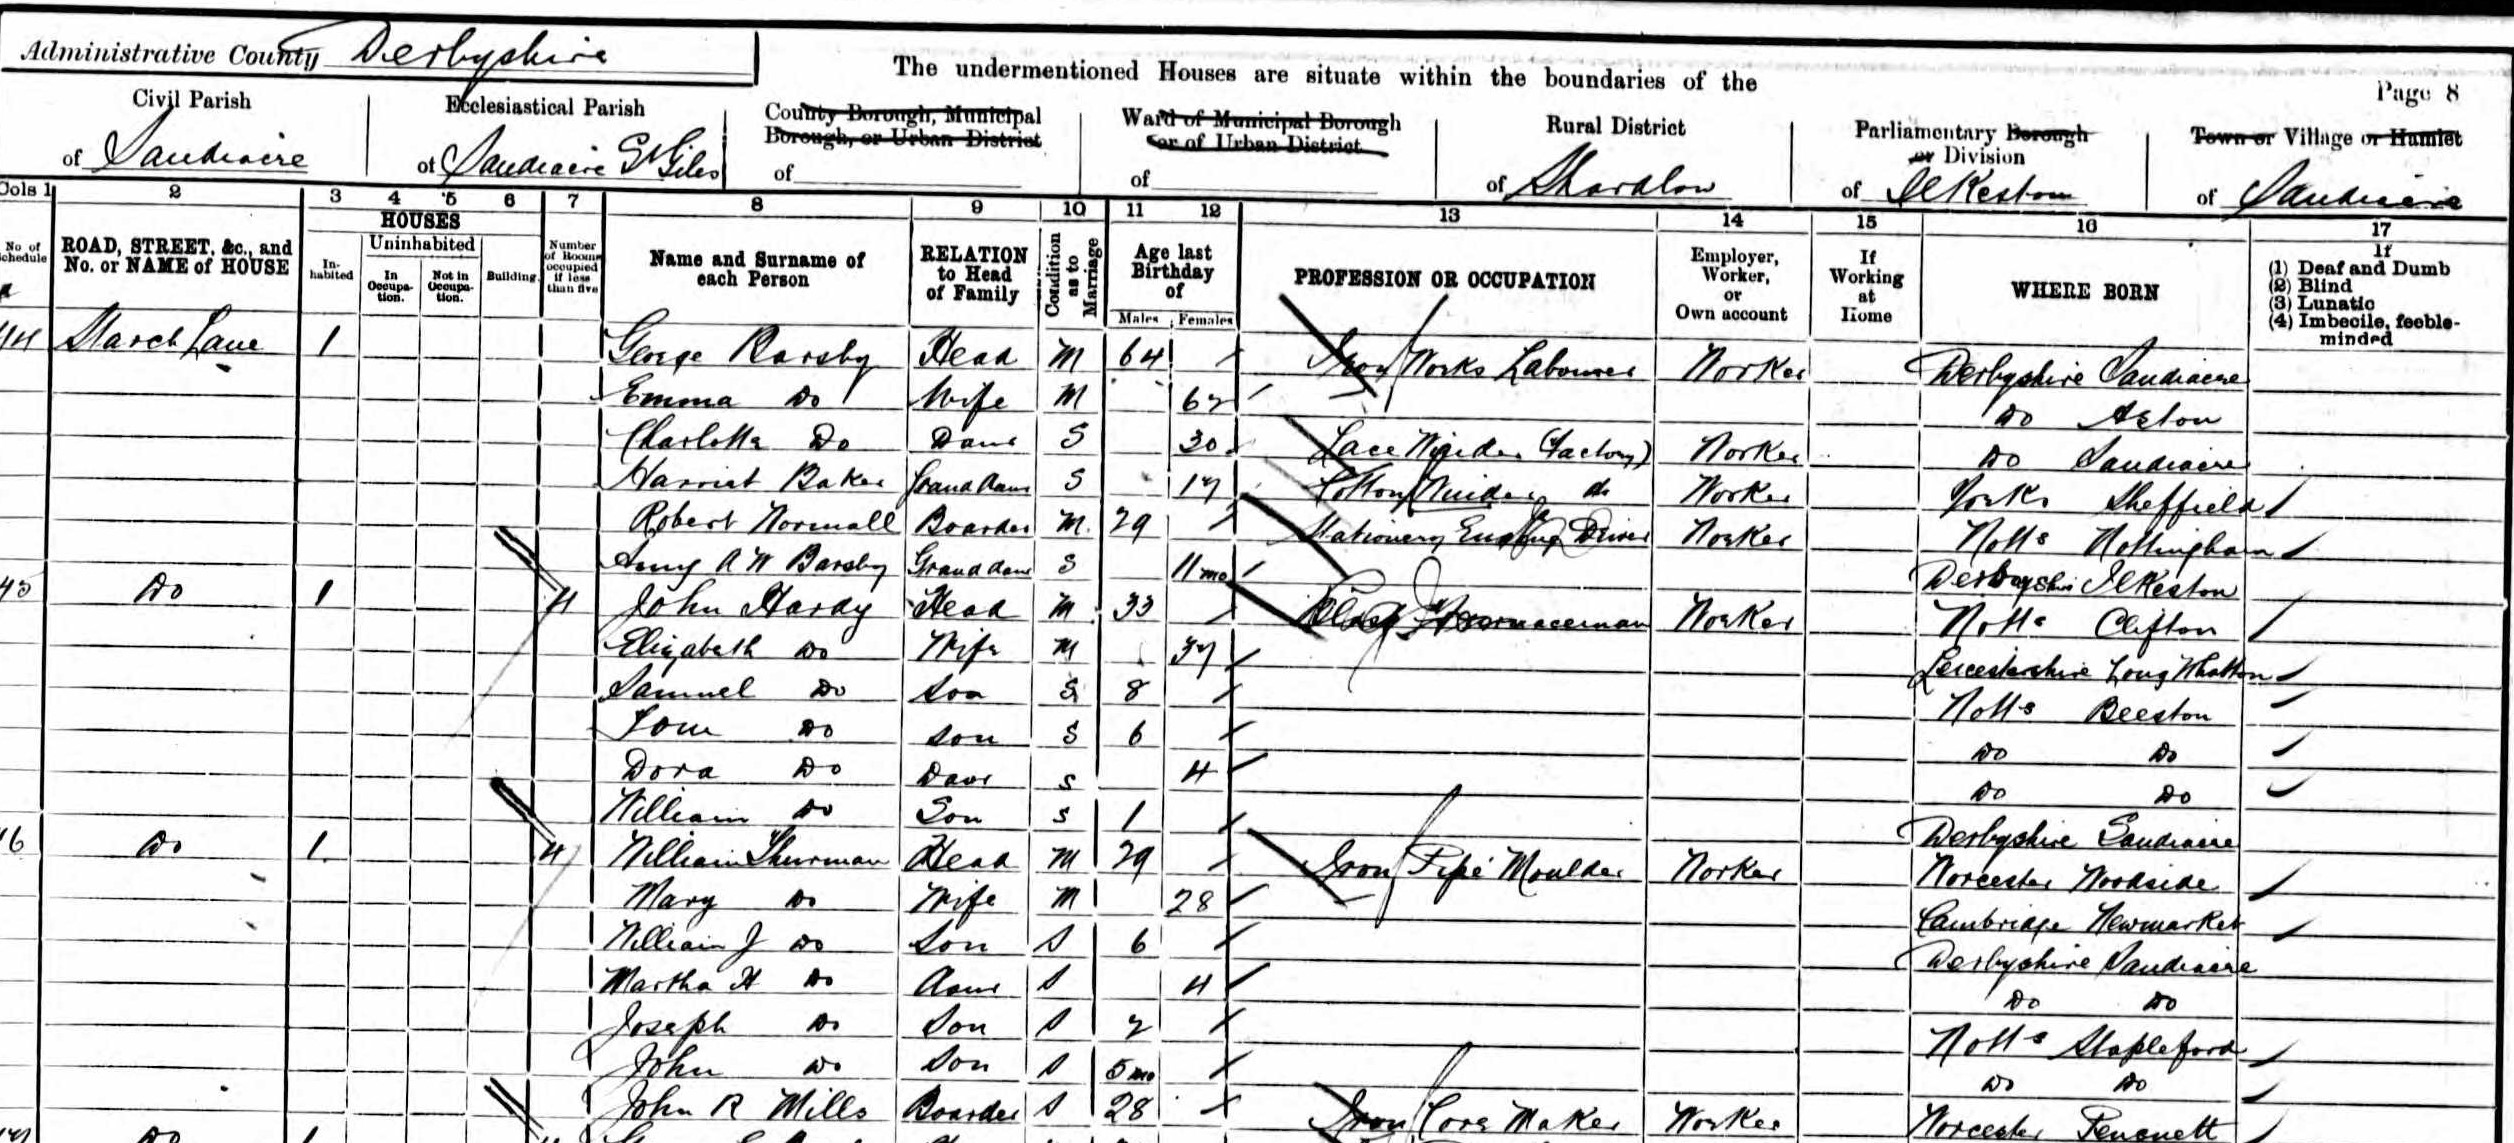 Administrative County Derbyshire
The undermentioned Houses are situate within the boundaries of the
Page 8
Civil Parish of Sandiacre
Ecclesiastical Parish of Sandiacre St Giles
County Borough, Municipal Borough, or Urban District of
Ward of Municipal Borough or of Urban District of
Rural District of Shardlow
Parliamentary Borough or Division of Ilkeston
Town or Village or Hamlet of Sandiacre
Cols 1 2 3 4 5 6 7 8 9 10 11 12 13 14 15 16 17
No of Schedule
ROAD, STREET, &c., and No. or NAME of HOUSE
HOUSES
Inhabited
Uninhabited
In Occupation.
Not in Occupation.
Building.
Number of Rooms occupied if less than five
Name and Surname of each Person
RELATION to Head of Family
Condition as to Marriage
Age last Birthday of
Males Females
PROFESSION OR OCCUPATION
Employer, Worker, or Own account
If Working at Home
WHERE BORN
If
(1) Deaf and Dumb
(2) Blind
(3) Lunatic
(4) Imbecile, feeble-minded
44 Lane 1 George Barsby Head M 64 Iron Works Labourer Worker Derbyshire Sandiacre
Emma Do Wife M 62 Do Aston
Charlotte Do Daur S 30 Lace Winder (Factory) Worker Do Sandiacre
Harriet Baker Grand daur S 17 Cotton Winder do Worker Yorks Sheffield
Robert Normall Boarder M 29 Stationery Engine Driver Worker Notts Nottingham
Amy A W Barsby Grand daur S 11 mo Derbyshire Ilkeston
45 Do 1 4 John Hardy Head M 33 Blast Furnaceman Worker Notts Clifton
Elizabeth Do Wife M 37 Leicestershire Long Whatton
Samuel Do Son S 8 Notts Beeston
Tom Do Son S 6 Do Do
Dora Do Daur S 4 Do Do
William Do Son S 1 Derbyshire Sandiacre
46 Do 1 4 William Thurman Head M 29 Iron Pipe Moulder Worker Worcester Woodside
Mary Do Wife M 28 Cambridge Newmarket
William J Do Son S 6 Derbyshire Sandiacre
Martha H Do Daur S 4 Do Do
Joseph Do Son S 2 Notts Stapleford
John Do Son S 5 mo Do Do
John R Mills Boarder S 28 Iron Core Maker Worker Worcester Pensnett